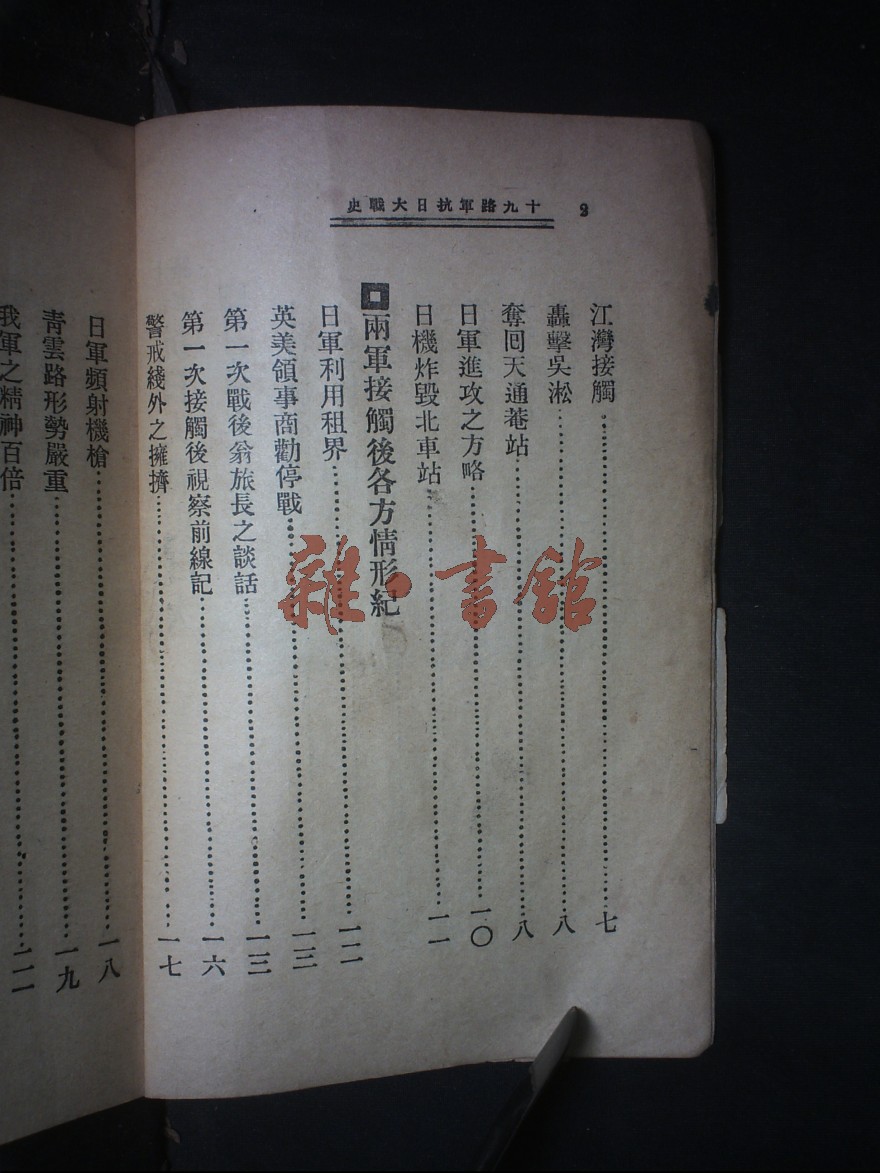 十九路軍抗日大戰史
江灣接觸……七
轟擊吳淞……八
奪囘天通菴站……八
日軍進攻之方略……一〇
日機炸毀北車站……一一
兩軍接觸後各方情形紀
日軍利用租界……一二
英美領事商勸停戰……一三
第一次戰後翁旅長之談話……一三
第一次接觸後視察前線記……一六
警戒綫外之擁擠……一七
日軍頻射機槍……一八
靑雲路形勢嚴重……一九
我軍之精神百倍
雜·書館